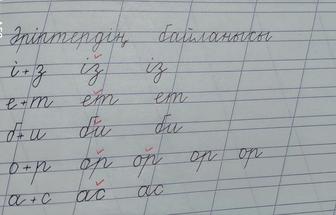 Әріптердің байланысы
і+з із із
е+т ет ет
б+и би би
о+р ор ор ор ор
а+с ас ас